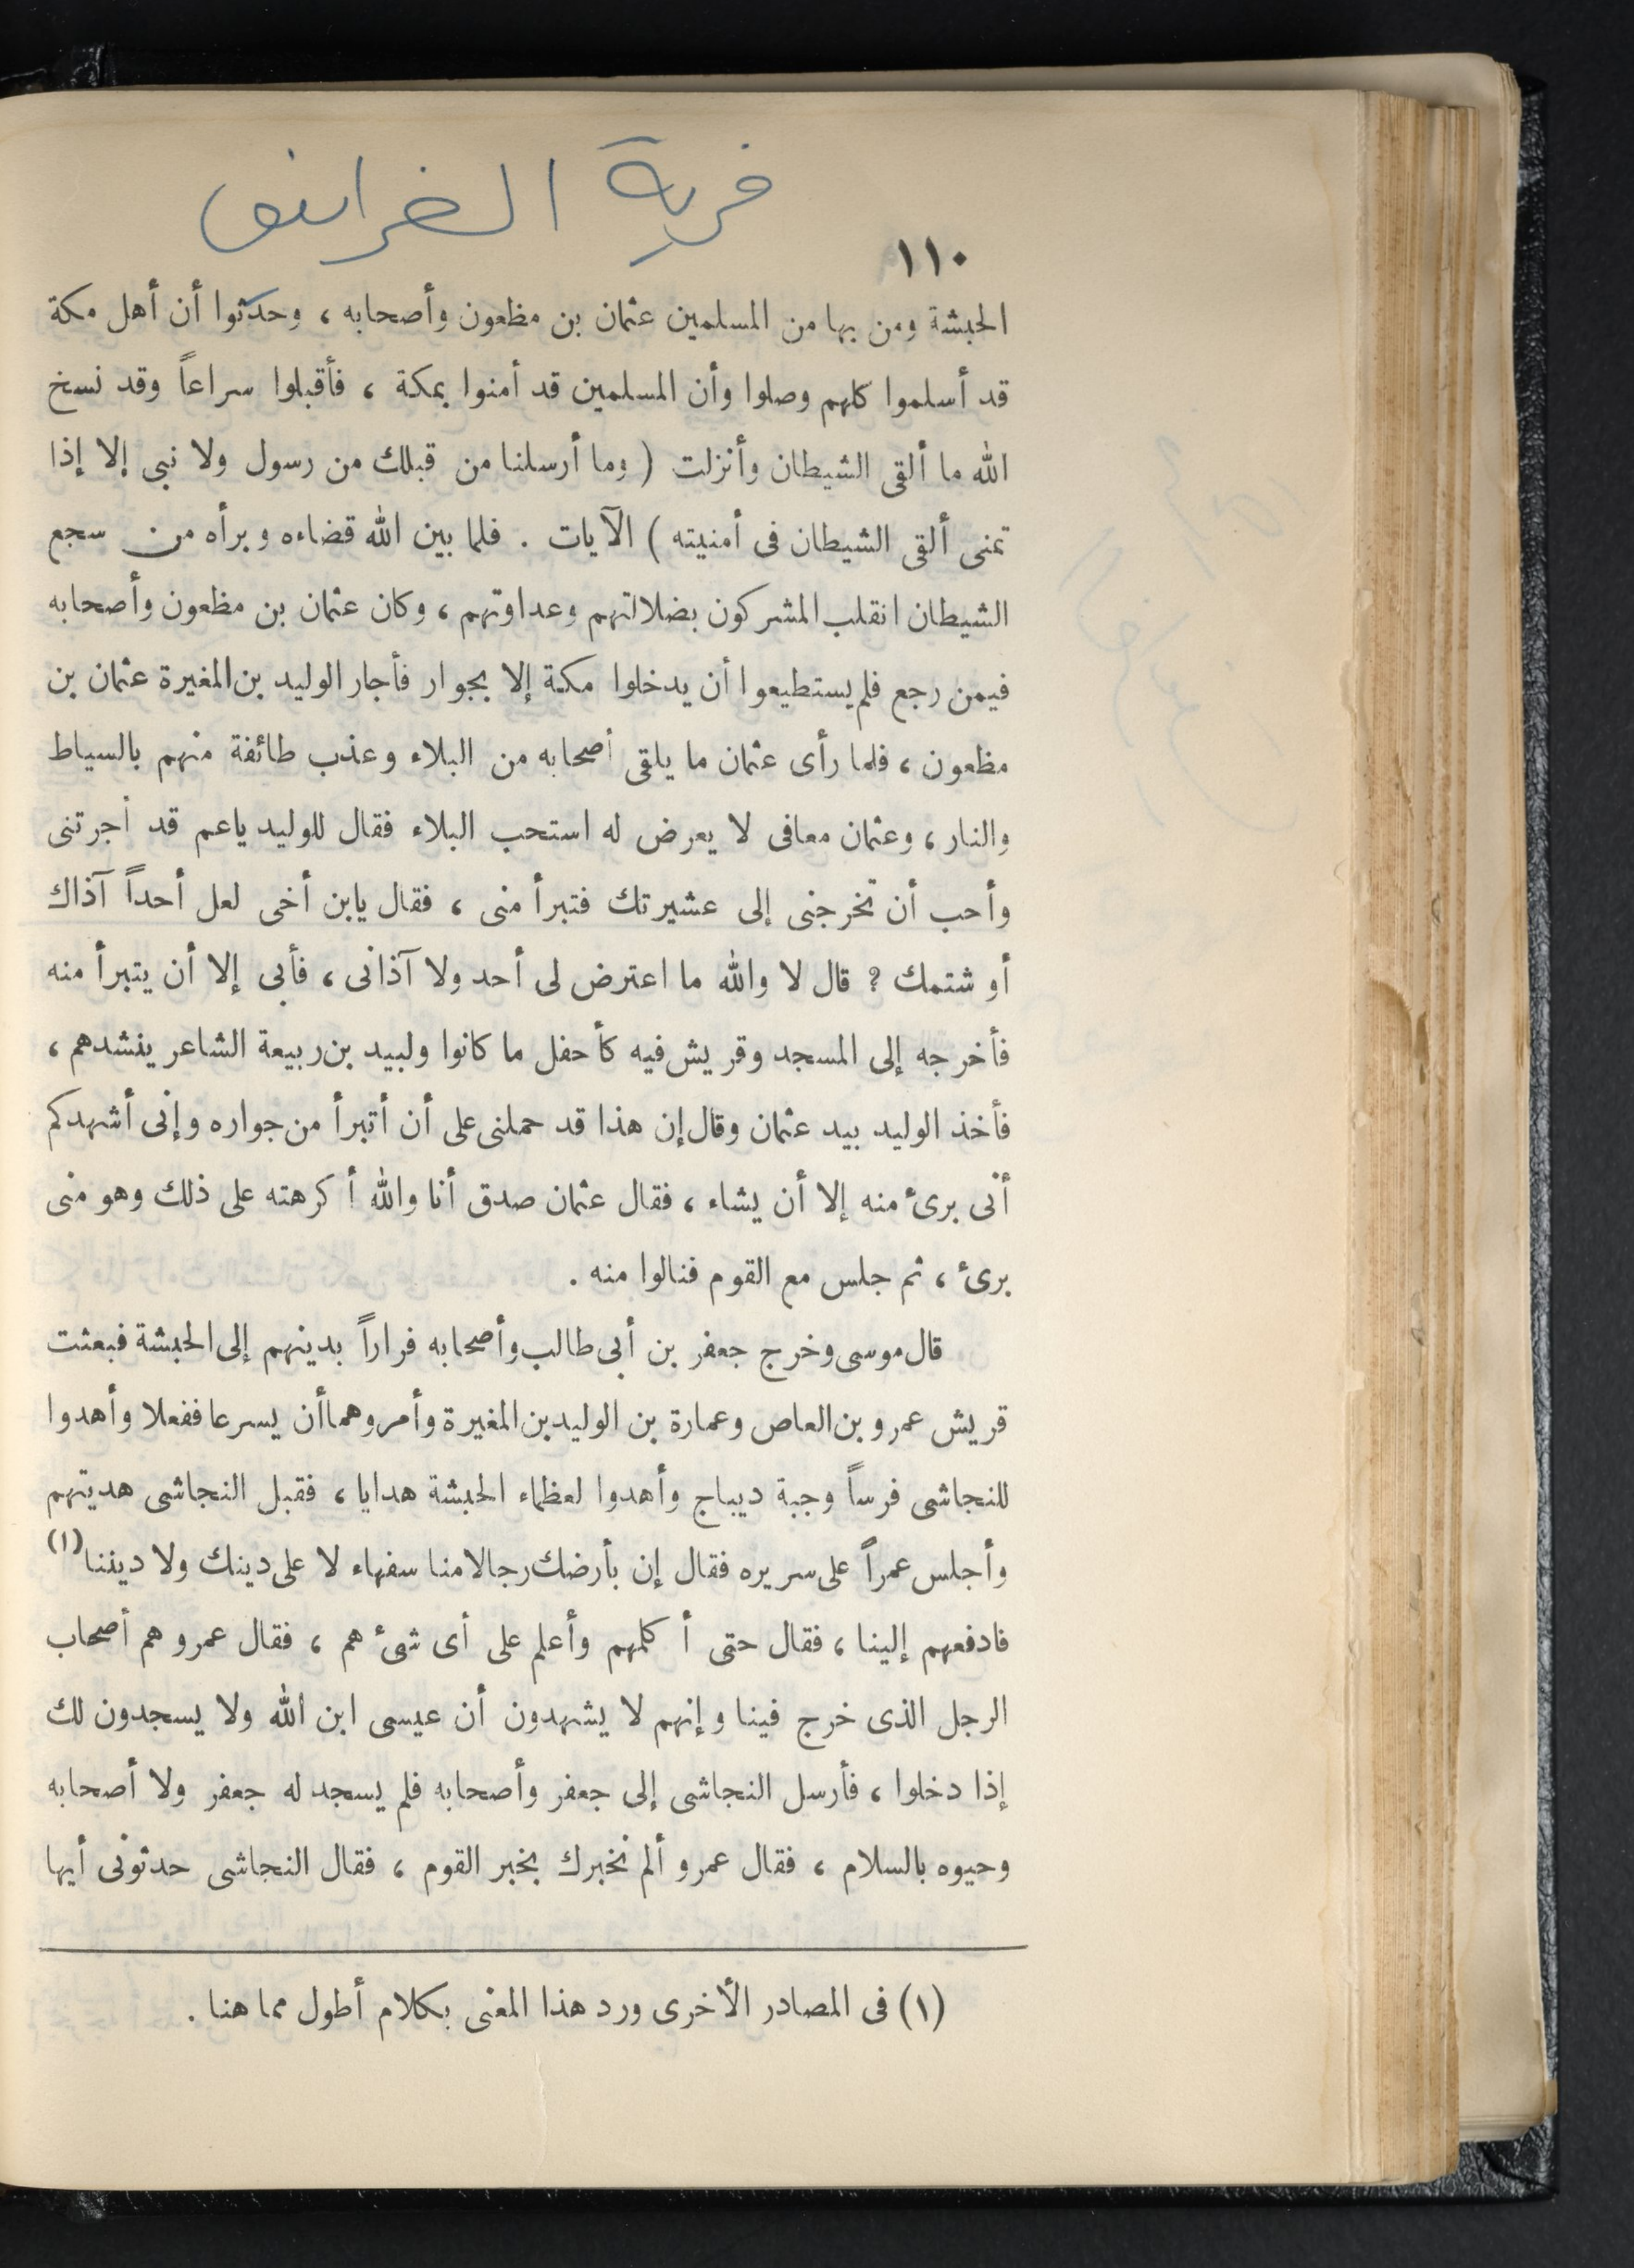 فرية الغرانيق
١١٠
الحبشة ومن بها من المسلمين عثمان بن مظعون وأصحابه ، وحدثوا أن أهل مكة
قد أسلموا كلهم وصلوا وأن المسلمين قد أمنوا بمكة ، فأقبلوا سراعاً وقد نسخ
الله ما ألقى الشيطان وأنزلت ( وما أرسلنا من قبلك من رسول ولا نبى إلا إذا
تمنى ألقى الشيطان فى أمنيته ) الآيات . فلما بين الله قضاءه وبرأه من سجع
الشيطان انقلب المشركون بضلالتهم وعداوتهم ، وكان عثمان بن مظعون وأصحابه
فيمن رجع فلم يستطيعوا أن يدخلوا مكة إلا بجوار فأجار الوليد بن المغيرة عثمان بن
مظعون ، فلما رأى عثمان ما يلقى أصحابه من البلاء وعذب طائفة منهم بالسياط
والنار ، وعثمان معافى لا يعرض له استحب البلاء فقال للوليد ياعم قد أجرتنى
وأحب أن تخرجنى إلى عشيرتك فتبرأ منى ، فقال يابن أخى لعل أحداً آذاك
أو شتمك ؟ قال لا والله ما اعترض لى أحد ولا آذانى ، فأبى إلا أن يتبرأ منه
فأخرجه إلى المسجد وقريش فيه كأحفل ما كانوا ولبيد بن ربيعة الشاعر ينشدهم ،
فأخذ الوليد بيد عثمان وقال إن هذا قد حملنى على أن أتبرأ من جواره وإنى أشهدكم
أنى برىء منه إلا أن يشاء ، فقال عثمان صدق أنا والله أكرهته على ذلك وهو منى
برىء ، ثم جلس مع القوم فنالوا منه .
قال موسى وخرج جعفر بن أبى طالب وأصحابه فراراً بدينهم إلى الحبشة فبعثت
قريش عمرو بن العاص وعمارة بن الوليد بن المغيرة وأمروهما أن يسرعا ففعلا وأهدوا
للنجاشى فرساً وجبة ديباج وأهدوا لعظماء الحبشة هدايا ، فقبل النجاشى هديتهم
وأجلس عمراً على سريره فقال إن بأرضك رجالا منا سفهاء لا على دينك ولا ديننا (١)
فادفعهم إلينا ، فقال حتى أكلمهم وأعلم على أى شىء هم ، فقال عمرو هم أصحاب
الرجل الذى خرج فينا وإنهم لا يشهدون أن عيسى ابن الله ولا يسجدون لك
إذا دخلوا ، فأرسل النجاشى إلى جعفر وأصحابه فلم يسجد له جعفر ولا أصحابه
وحيوه بالسلام ، فقال عمرو ألم نخبرك بخبر القوم ، فقال النجاشى حدثونى أيها
(١) فى المصادر الأخرى ورد هذا المعنى بكلام أطول مما هنا .